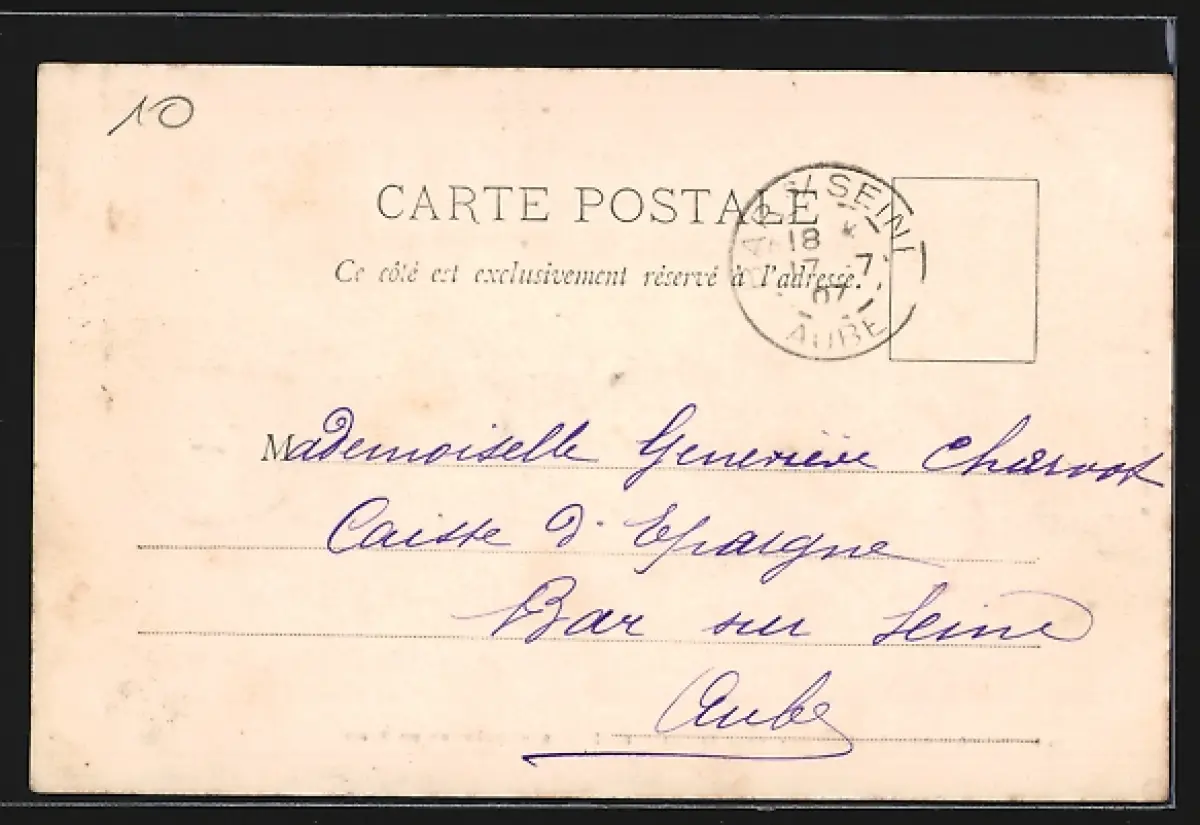 10
CARTE POSTALE
Ce côté est exclusivement réservé à l'adresse.
BAR S/ SEINE
18 *
17 7
07
AUBE
Mademoiselle Geneviève Charvot
Caisse d'Epargne
Bar sur Seine
Aube